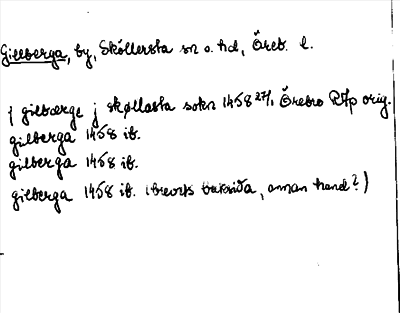 Gillberga, by, Sköllersta sn o. hd, Öreb. l.
j gilbærge j skøllasta sokn 1458 27/1 Örebro RAp orig.
gilberga 1458 ib.
gilberga 1458 ib.
gilberga 1458 ib. (brevets baksida, annan hand?)